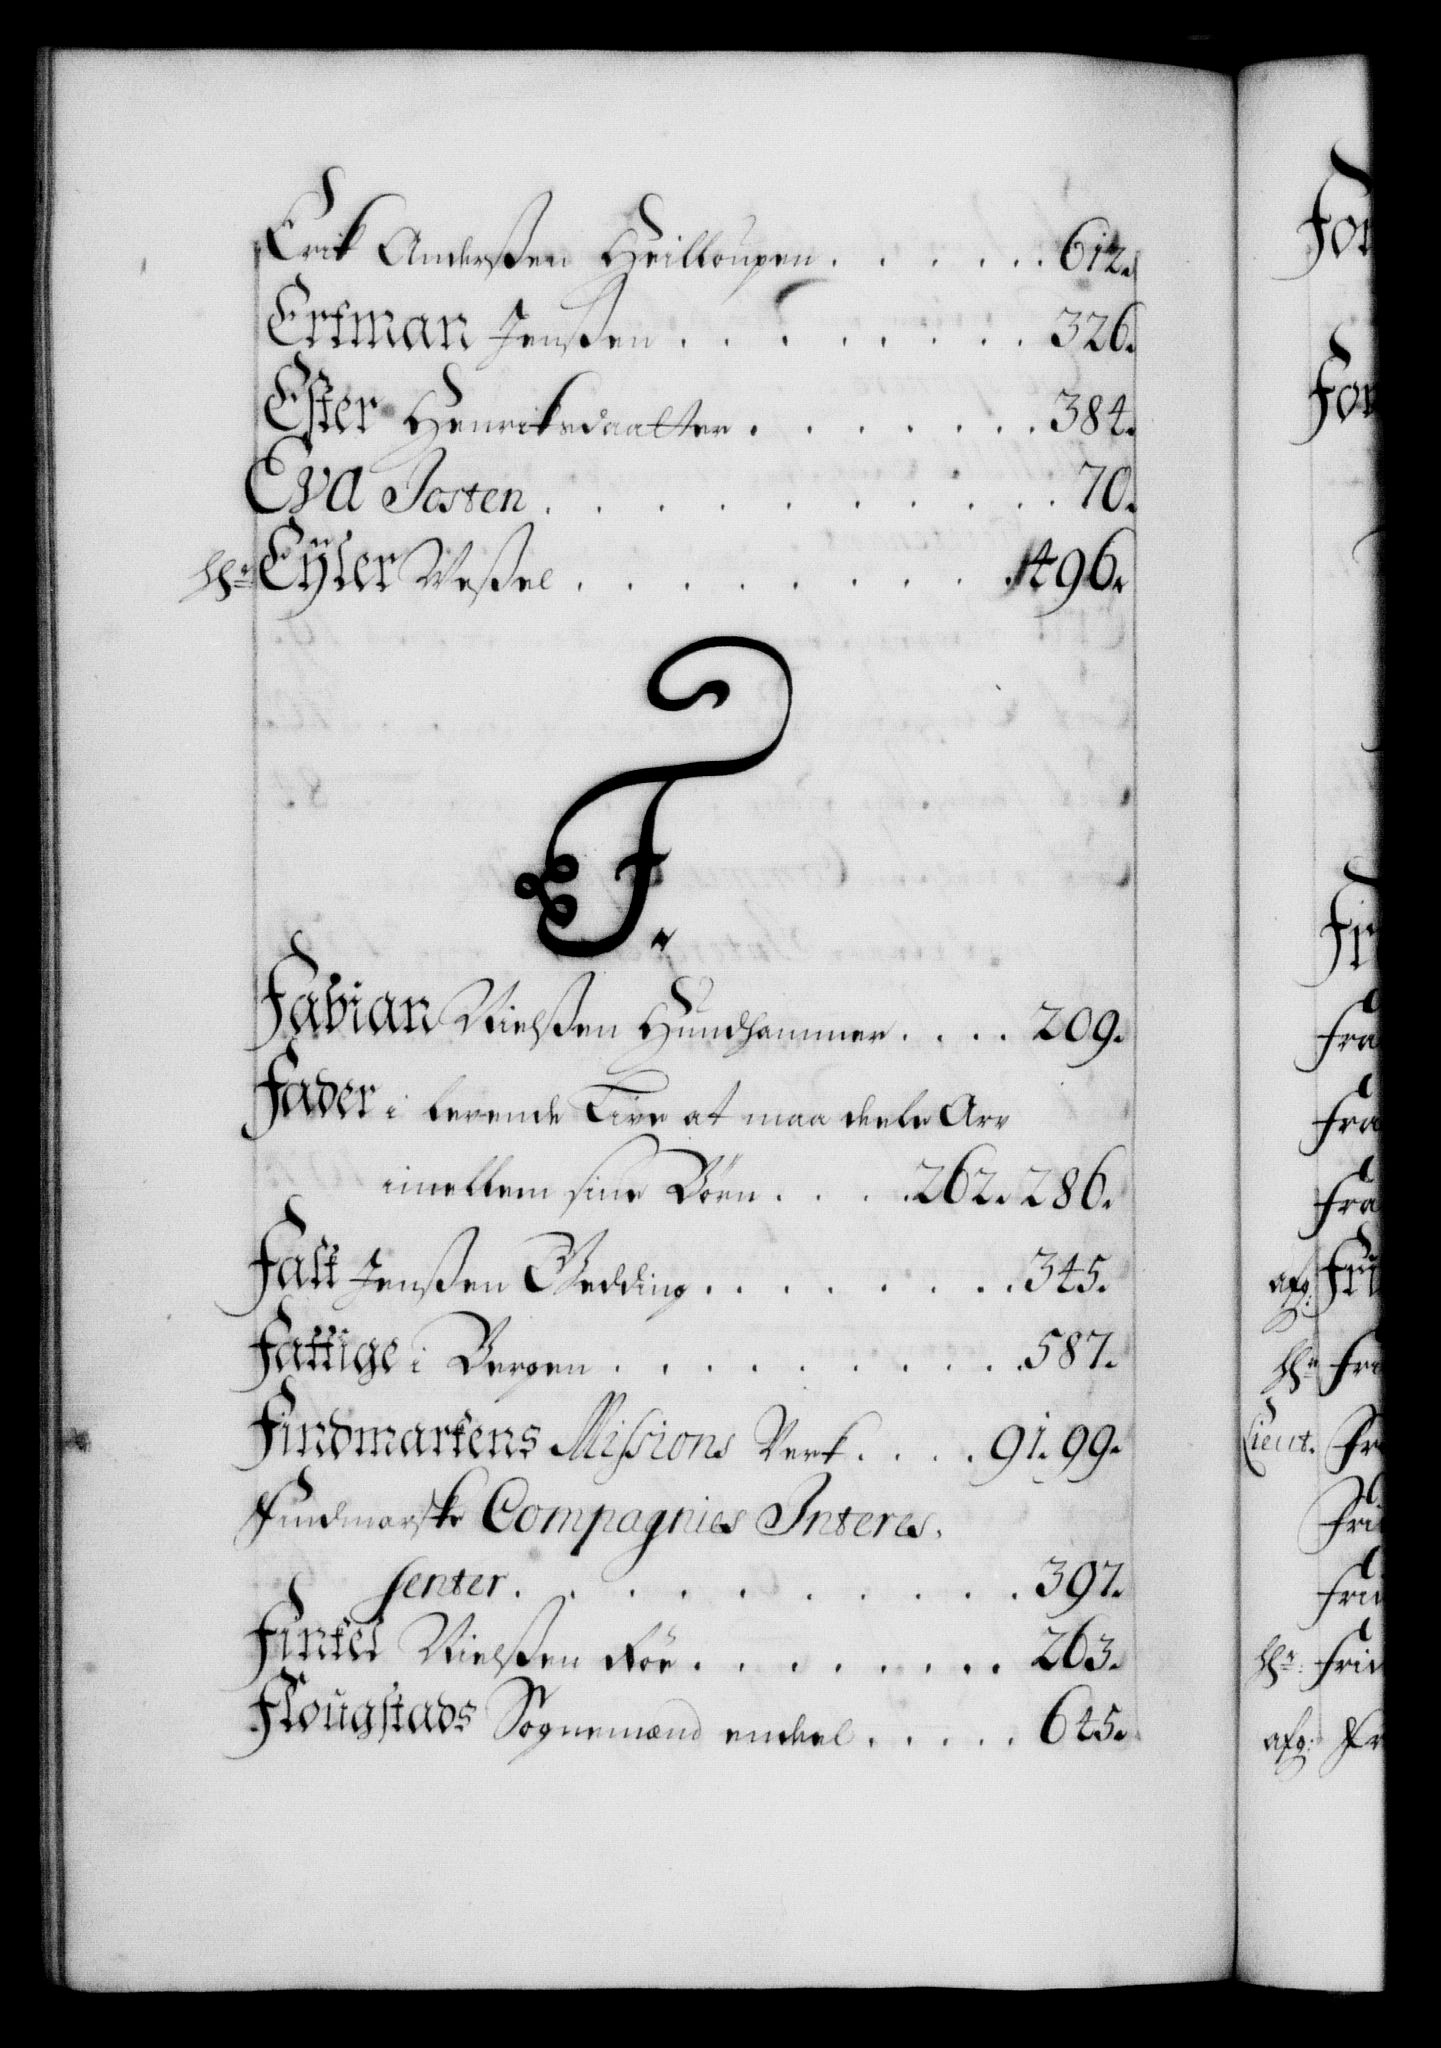 Erik Anderßen Heilloupen. . . . . . 612.
Ertman Jenßen. . . . . . . . 326.
Ester Henriksdaatter. . . . . . . 384.
Eva Josten. . . . . . . . . . 70.
Hr. Eÿler Weßel. . . . . . . . . 496.
F.
Fabian Nielßen Hundhammer. . . . 209.
Fader i levende Live at maa deele Arv
imellem sine Børn. . . . 262. 286.
Falk Jenßen Gedding. . . . . . . 345.
Fattige i Bergen. . . . . . . . . 587.
Findmarkens Missions Verk. . . . 91. 99.
Findmarske Compagnies Interes,
senter. . . . . . . . . . 397.
Finkel Nielßen Roe. . . . . . . . 263.
Flougstads Sognemænd endeel. . . . . 645.
For
For
Fra
Fra
Fra
afg:
Hr. Fri
Lieut. Fr
Fri
Fri
Hr: Frie
afg: Fr